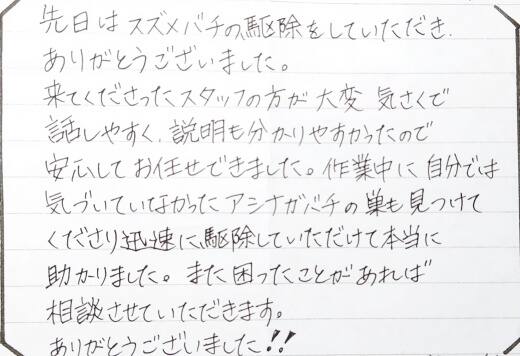 先日はスズメバチの駆除をしていただき、
ありがとうございました。
来てくださったスタッフの方が大変気さくで
話しやすく、説明も分かりやすかったので
安心してお任せできました。作業中に自分では
気づいていなかったアシナガバチの巣も見つけて
くださり迅速に駆除していただけて本当に
助かりました。また困ったことがあれば
相談させていただきます。
ありがとうございました!!